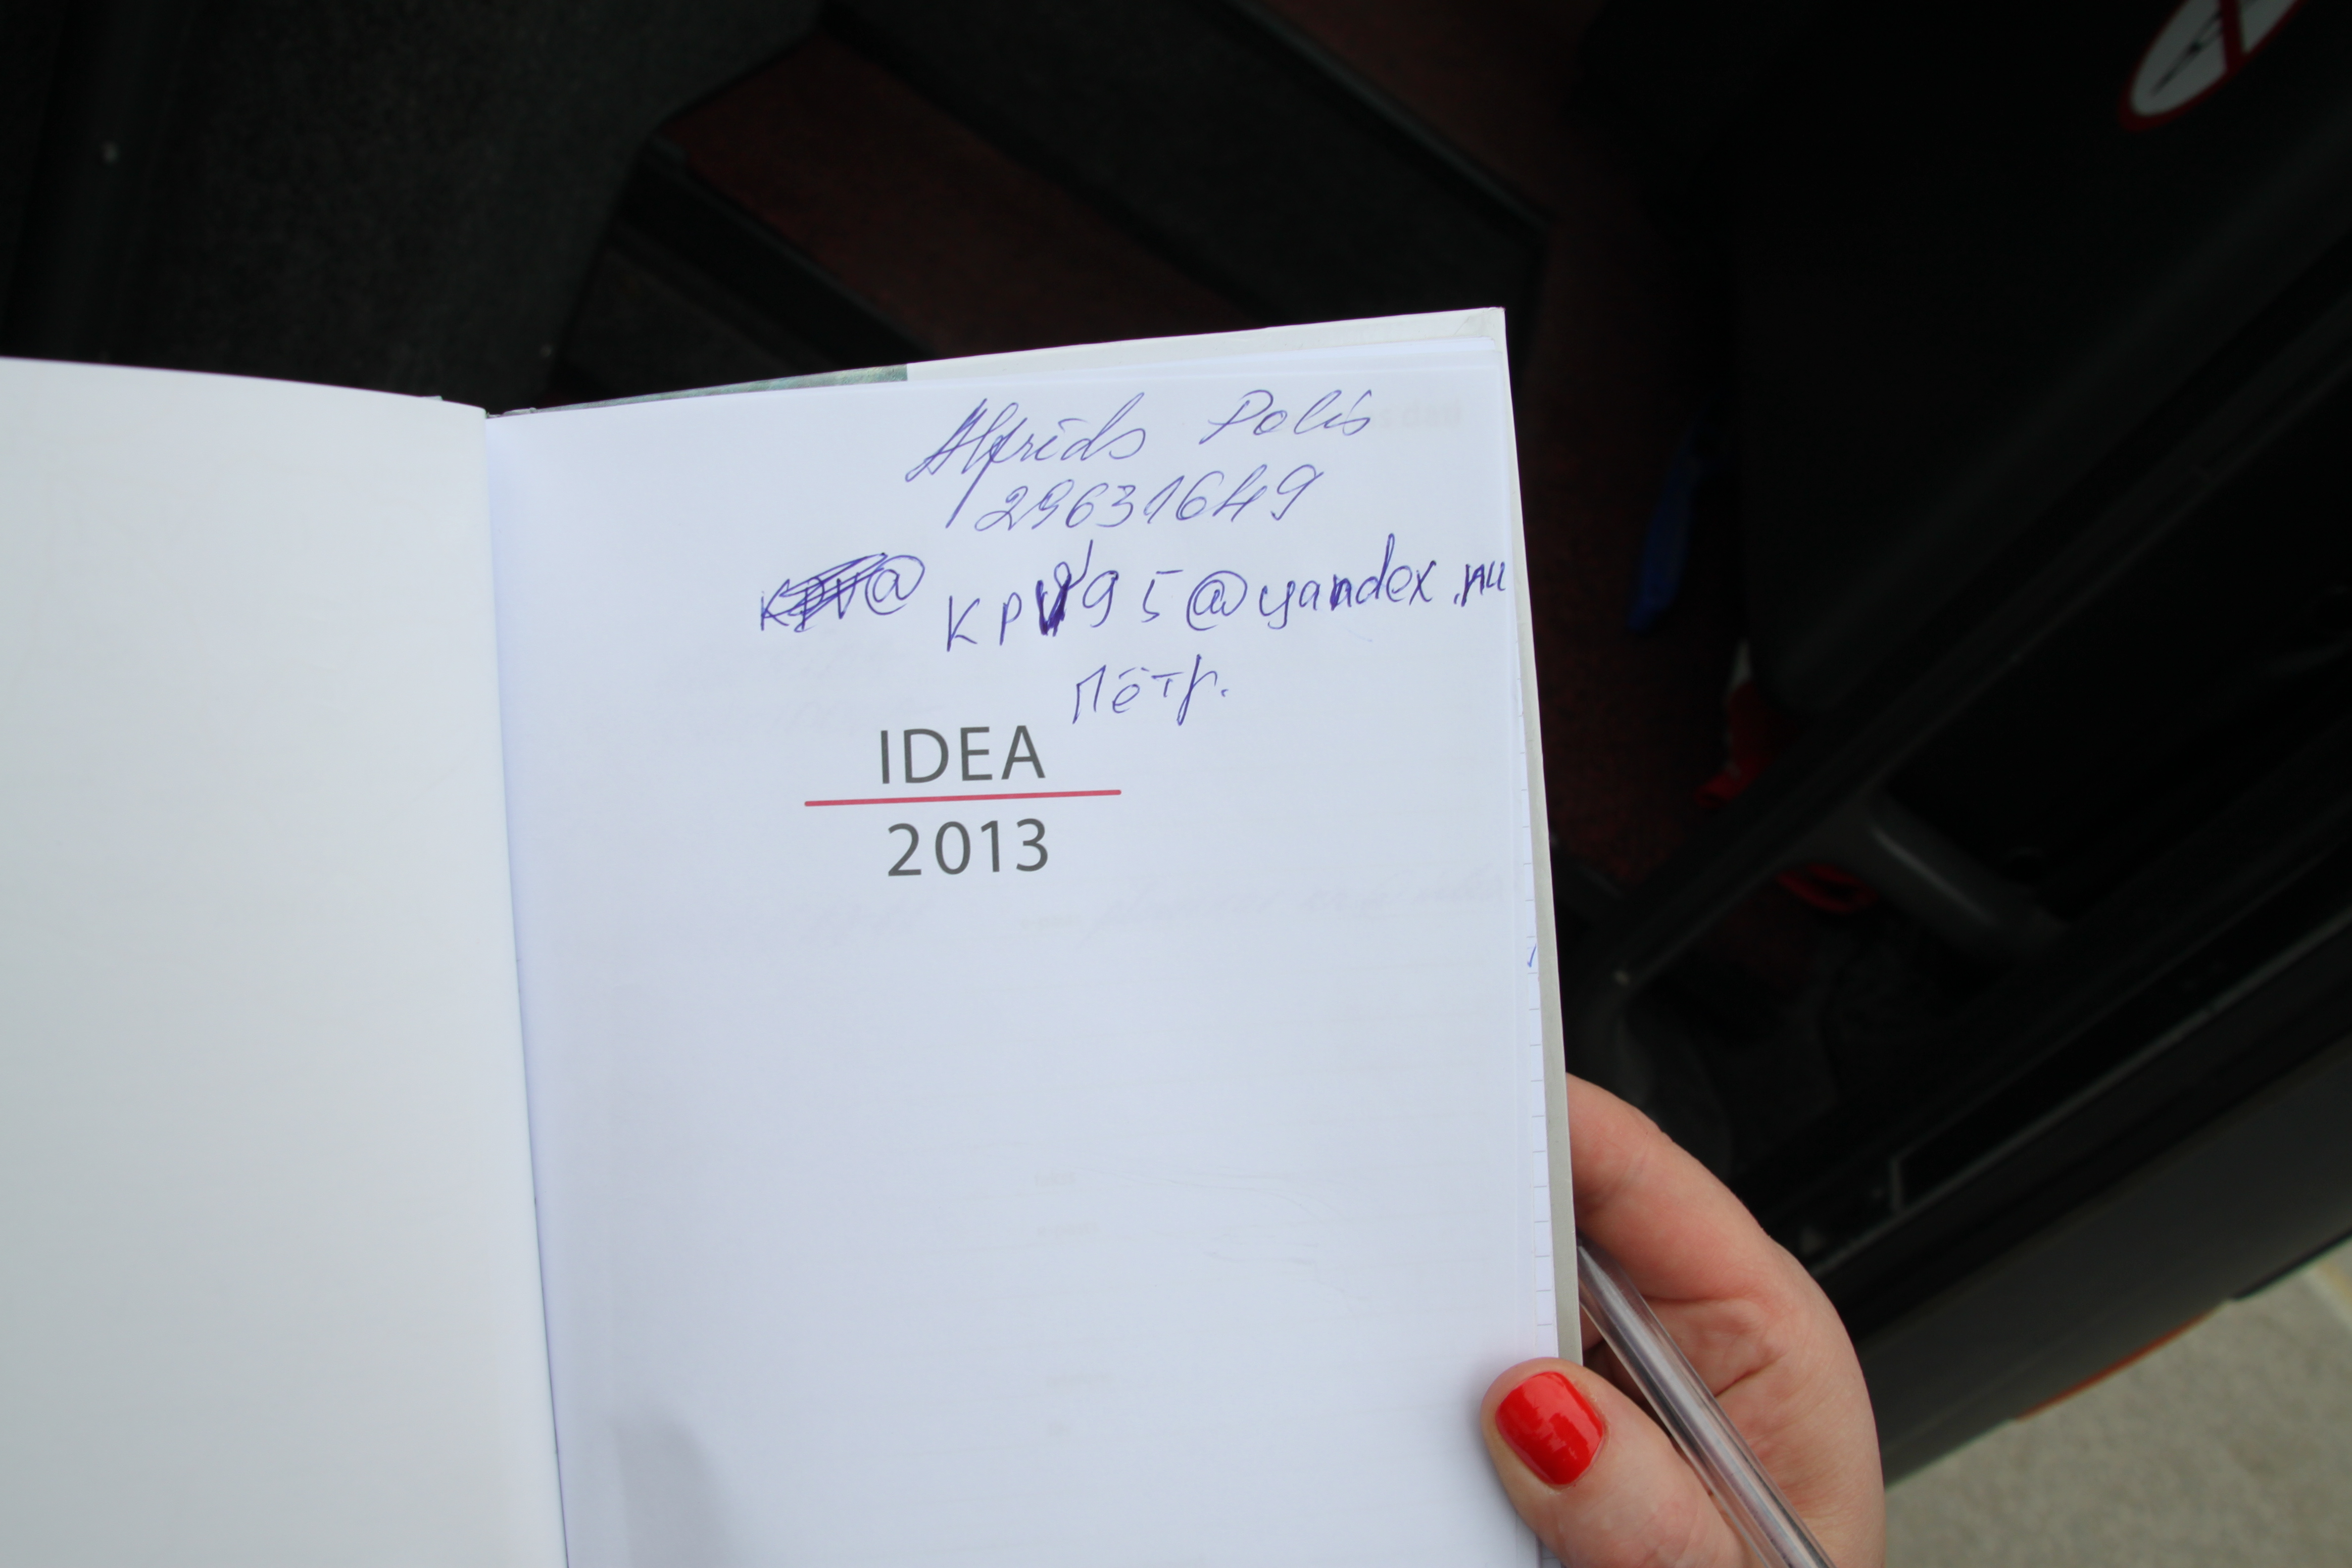 Alfrēds Polis
29631649
kpv95@yandex.ru
Пётр.
IDEA
2013